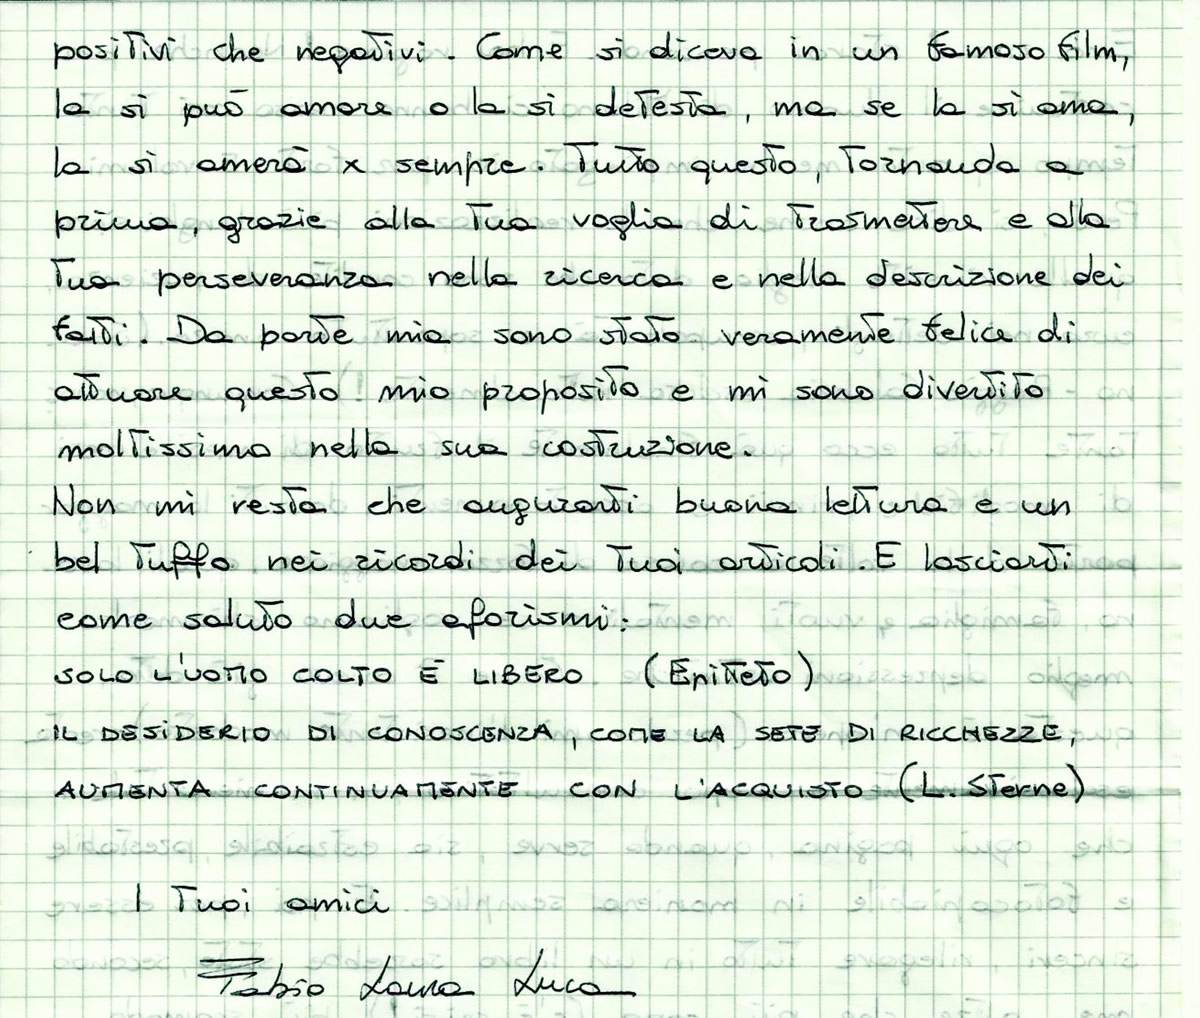 positivi che negativi. Come si diceva in un famoso film,
la si può amare o la si detesta, ma se la si ama,
la si amerà x sempre. Tutto questo, tornando a
prima, grazie alla tua voglia di trasmettere e alla
tua perseveranza nella ricerca e nella descrizione dei
fatti. Da parte mia sono stato veramente felice di
attuare questo mio proposito e mi sono divertito
moltissimo nella sua costruzione.
Non mi resta che augurarti buona lettura e un
bel tuffo nei ricordi dei tuoi articoli. E lasciarti
come saluto due aforismi:
SOLO L'UOMO COLTO È LIBERO (Epitteto)
IL DESIDERIO DI CONOSCENZA, COME LA SETE DI RICCHEZZE,
AUMENTA CONTINUAMENTE CON L'ACQUISTO (L. Sterne)
I tuoi amici
Fabio Laura Luca